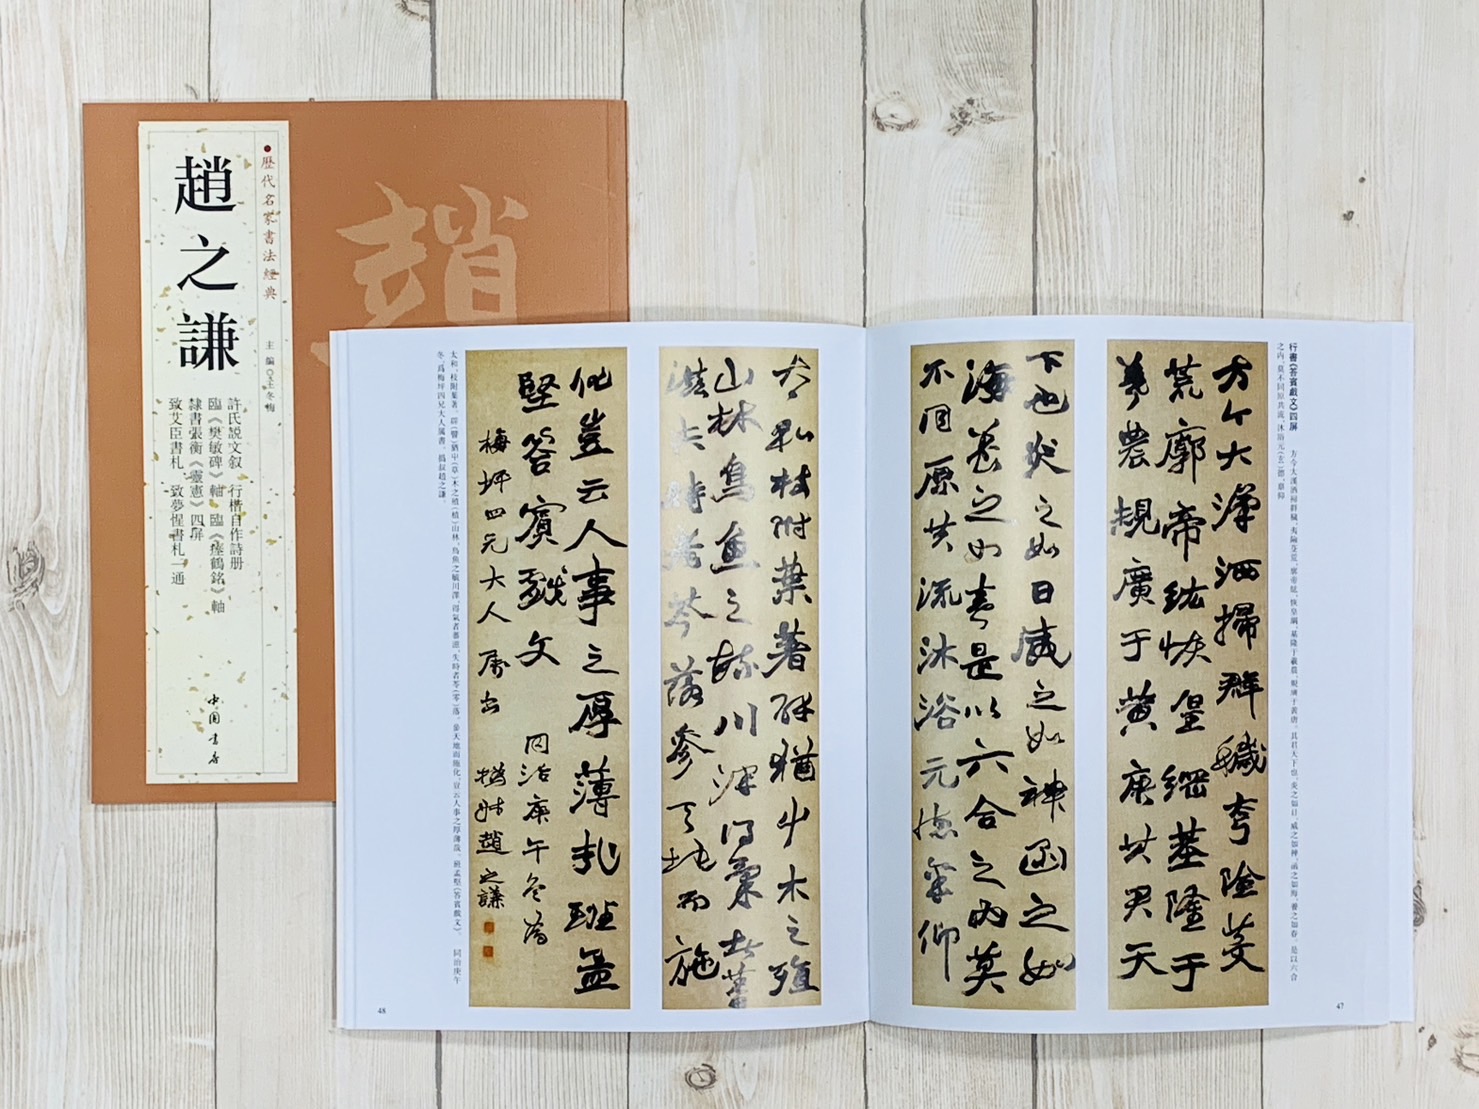 歷代名家書法經典
主編◎王冬梅
趙之謙
許氏説文叙 行楷自作詩册
臨《樊敏碑》軸 臨《瘞鶴銘》軸
隸書張衡《靈憲》四屏
致艾臣書札 致夢惺書札一通
中国书店
行書《答賓戲文》四屏
方今大漢洒掃群穢，夷險芟荒，廓帝紘，恢皇綱，基隆于羲農，規廣于黄唐。其君天下也，炎之如日，威之如神，函之如海，養之如春。是以六合
之内，莫不同原共流，沐浴元(玄)德，禀仰
方今大漢洒掃群穢夸險芟
荒廓帝紘恢皇綱基隆于
羲農規廣于黄唐其君天
下也炎之如日威之如神函之如
海養之如春是以六合之内莫
不同原共流沐浴元德禀仰
47
太和枝附葉著辟猶屮木之殖
山林鳥魚之毓川澤得氣者蕃
滋失時者苓落參天地而施
化豈云人事之厚薄哉班孟
堅答賓戲文 同治庚午冬爲
梅坪四兄大人属書 撝叔趙之謙
太和，枝附葉著，辟(譬)猶屮(草)木之殖(植)山林，鳥魚之毓川澤，得氣者蕃滋，失時者苓(零)落，參天地而施化，豈云人事之厚薄哉。班孟堅《答賓戲文》。 同治庚午
冬，爲梅坪四兄大人属書。撝叔趙之謙。
48